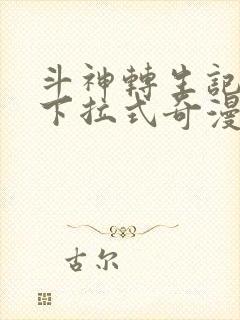 斗神轉生記
下拉式奇漫
古尔